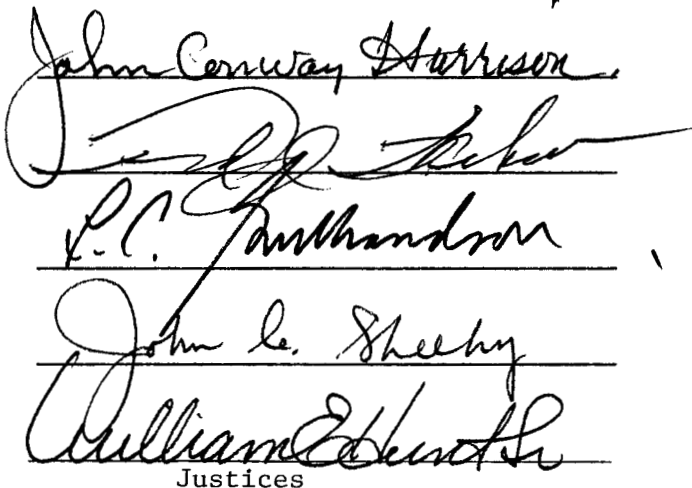 John Conway Harrison
L. C. Gulbrandson
John C. Sheehy
William E Hunt Sr
Justices